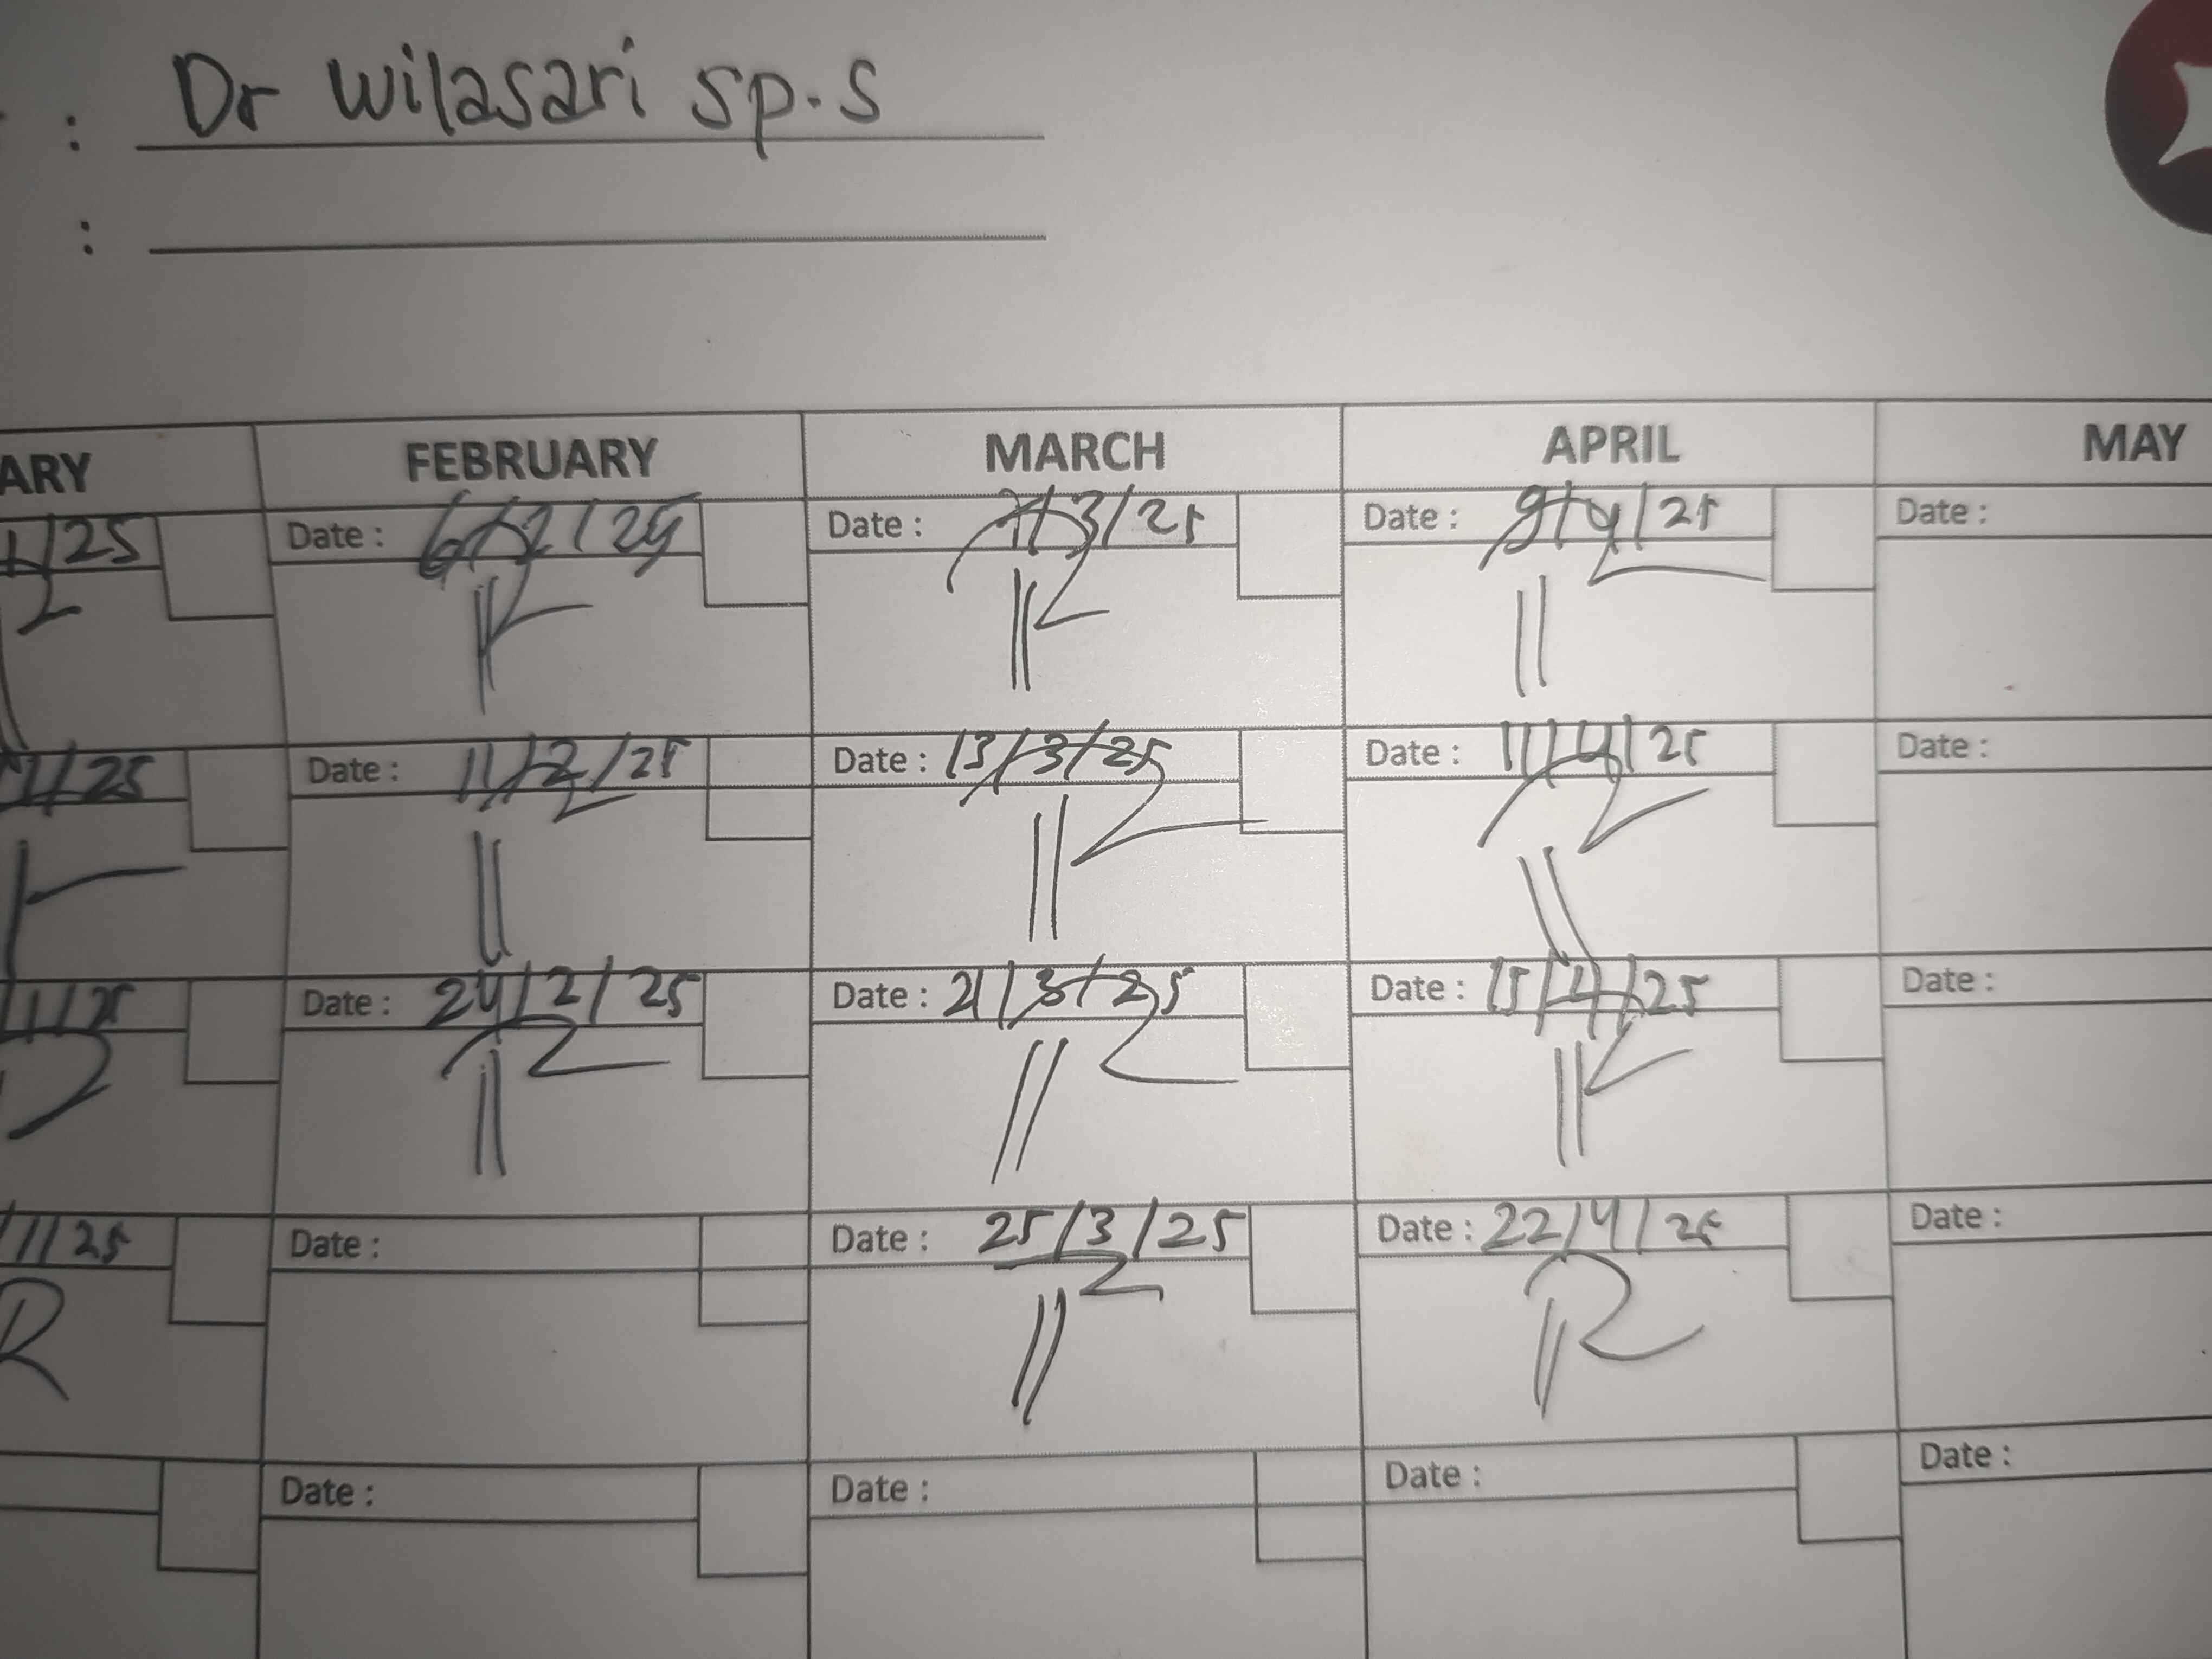 : Dr Wilasari sp.s
:
ARY FEBRUARY MARCH APRIL MAY
/25 Date : 6/2/25 Date : 7/3/25 Date : 9/4/25 Date :
1/25 Date : 11/2/25 Date : 13/3/25 Date : 11/4/25 Date :
1/25 Date : 24/2/25 Date : 21/3/25 Date : 15/4/25 Date :
/1/25 Date : Date : 25/3/25 Date : 22/4/25 Date :
Date : Date : Date : Date :